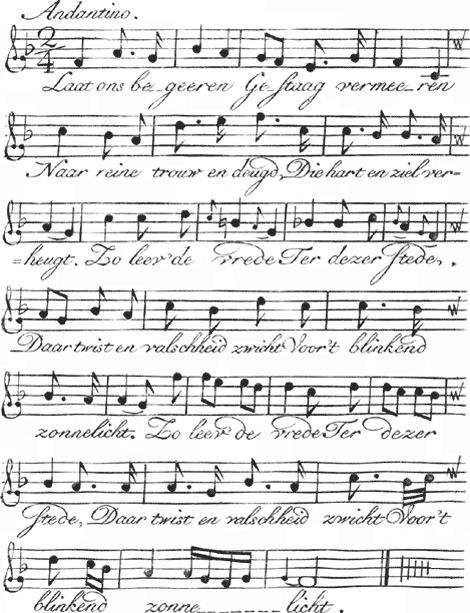 Andantino.
2/4
Laat ons be-geeren Ge-staag vermee-ren
Naar reine trouw en deugd, Die hart en ziel ver-
=heugt. Zo leev' de vrede Ter dezer stede,
Daar twist en valschheid zwicht Voor't blinkend
zonnelicht. Zo leev' de vrede Ter dezer
stede, Daar twist en valschheid zwicht Voor't
blinkend zonne-------licht.